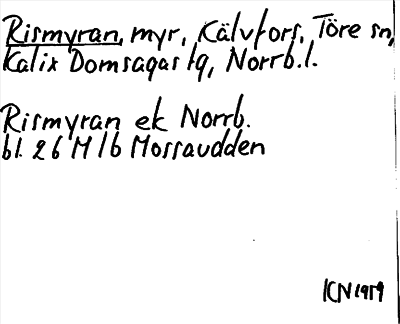 Rismyran, myr, Kälvfors, Töre sn,
Kalix Domsagas tg, Norrb.l.
Rismyran ek Norrb.
bl. 26 M 1b Mossaudden
KN 1979